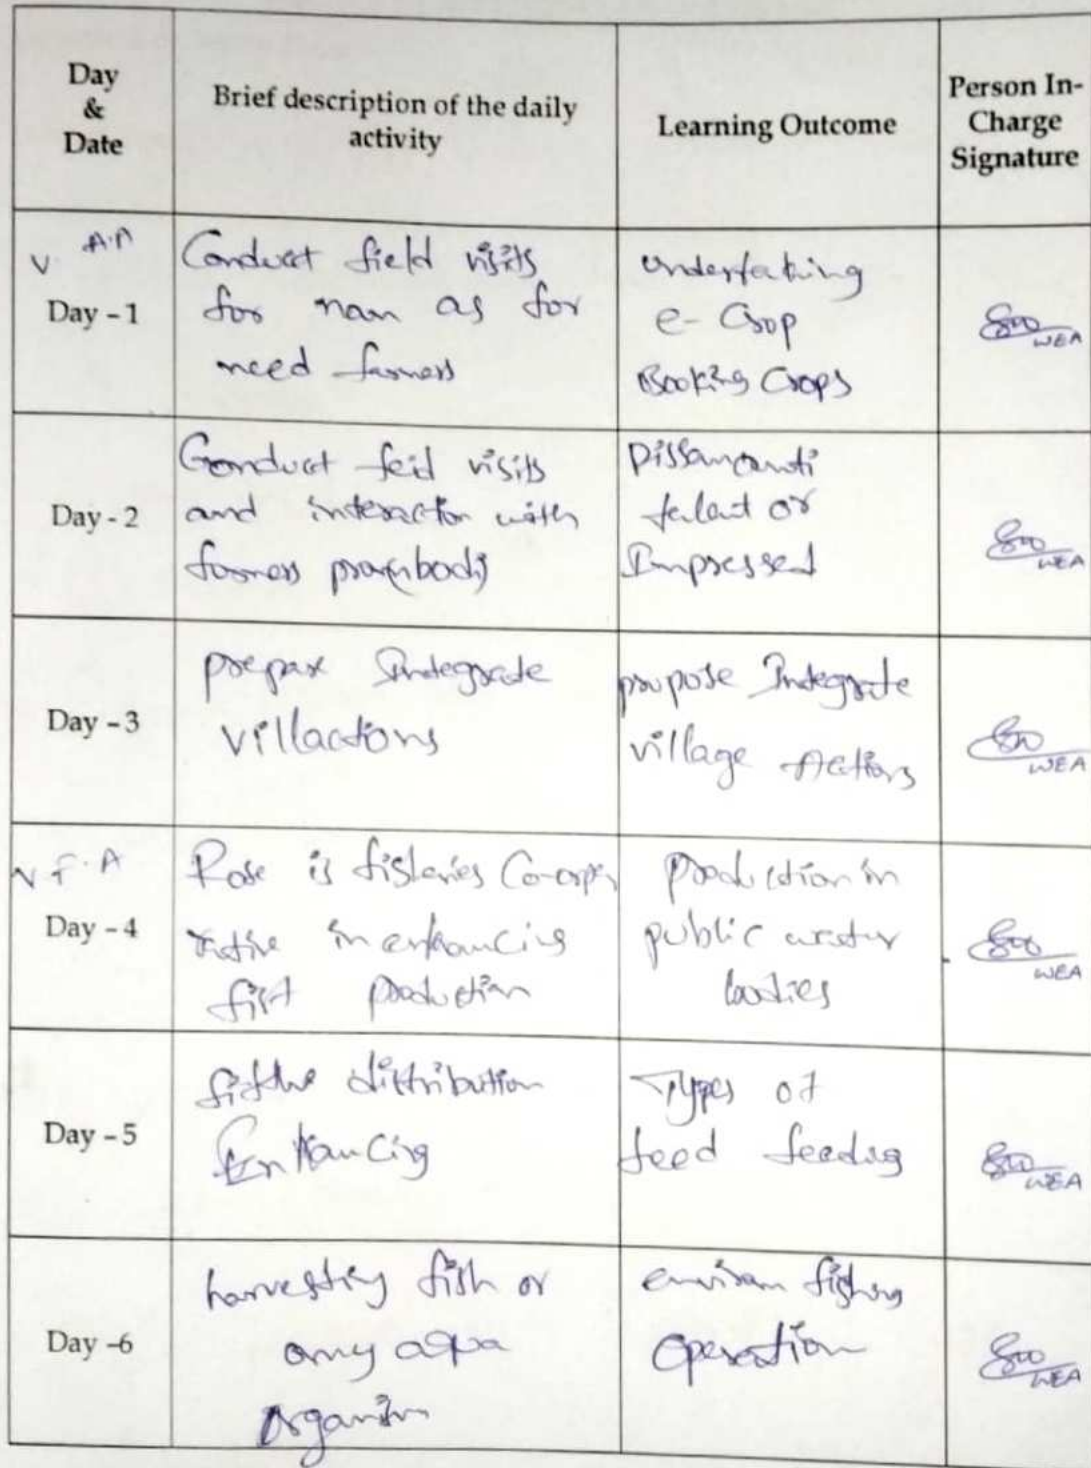 Day
&
Date
Brief description of the daily
activity
Learning Outcome
Person In-
Charge
Signature
V A.A
Day - 1
Conduct field visits
for nam as for
need farmers
undertaking
e- Crop
Booking Crops
WEA
Day - 2
Conduct feild visits
and interaction with
farmers
talent or
Impressed
WEA
Day - 3
prepare Integrate
villactions
propose Integrate
village Actions
WEA
V F.A
Day - 4
Role is fisheries Co-oper
rative in enhancing
fist production
production in
public water
bodies
WEA
Day - 5
distribution
Enhancing
Types of
feed feeding
WEA
Day -6
harvesting fish or
any aqua
organism
fishing
operation
WEA